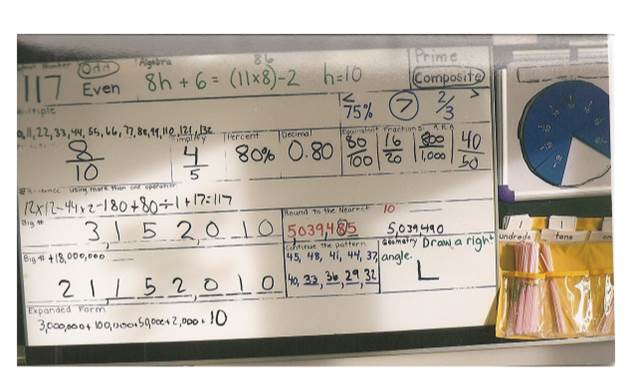 Odd Algebra 86 Prime
117 Even 8h + 6 = (11x8)-2 h=10 Composite
< 75% > 2/3 >
0,11,22,33,44,55,66,77,88,99,110,121,132
8/10 4/5 Percent 80% Decimal 0.80 Equivalent Fractions A.K.A 80/100 16/20 800/1,000 40/50
using more than one operation
12x12-44x2-180+80÷1+17=117
Big # 3,152,010
Round to the Nearest 10
5039485 5,039,490
Big # +18,000,000
21,152,010
Continue the pattern
45, 48, 41, 44, 37,
40, 33, 36, 29, 32
Geometry Draw a right
angle.
Expanded Form
3,000,000+100,000+50,000+2,000+10
hundreds tens